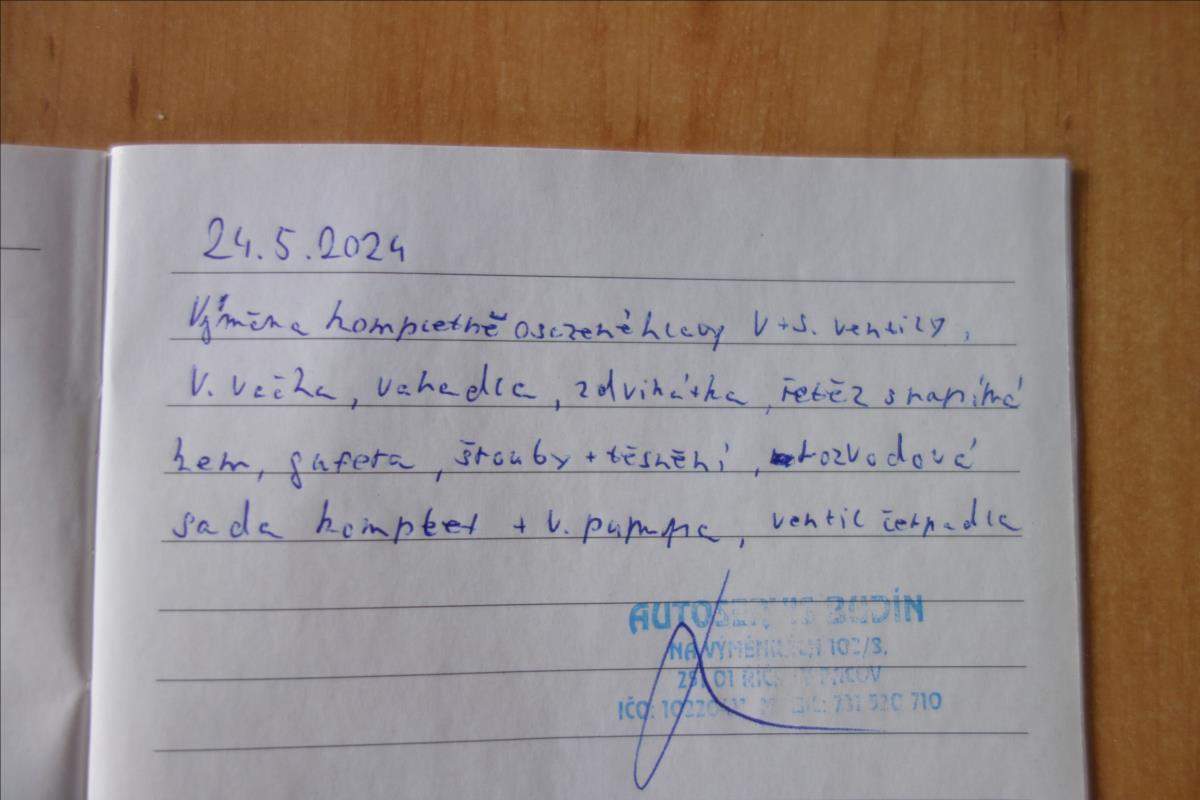 24.5.2024
Výměna kompletně osazené hlavy V+S. ventily,
V. vačka, vahadla, zdvihátka, řetěz s napíná
kem, gufera, šrouby + těsnění, rozvodová
sada komplet + V. pumpa, ventil čerpadla
AUTOSERVIS BUDÍN
NA 102/8,
251 01
IČO: 731 520 710